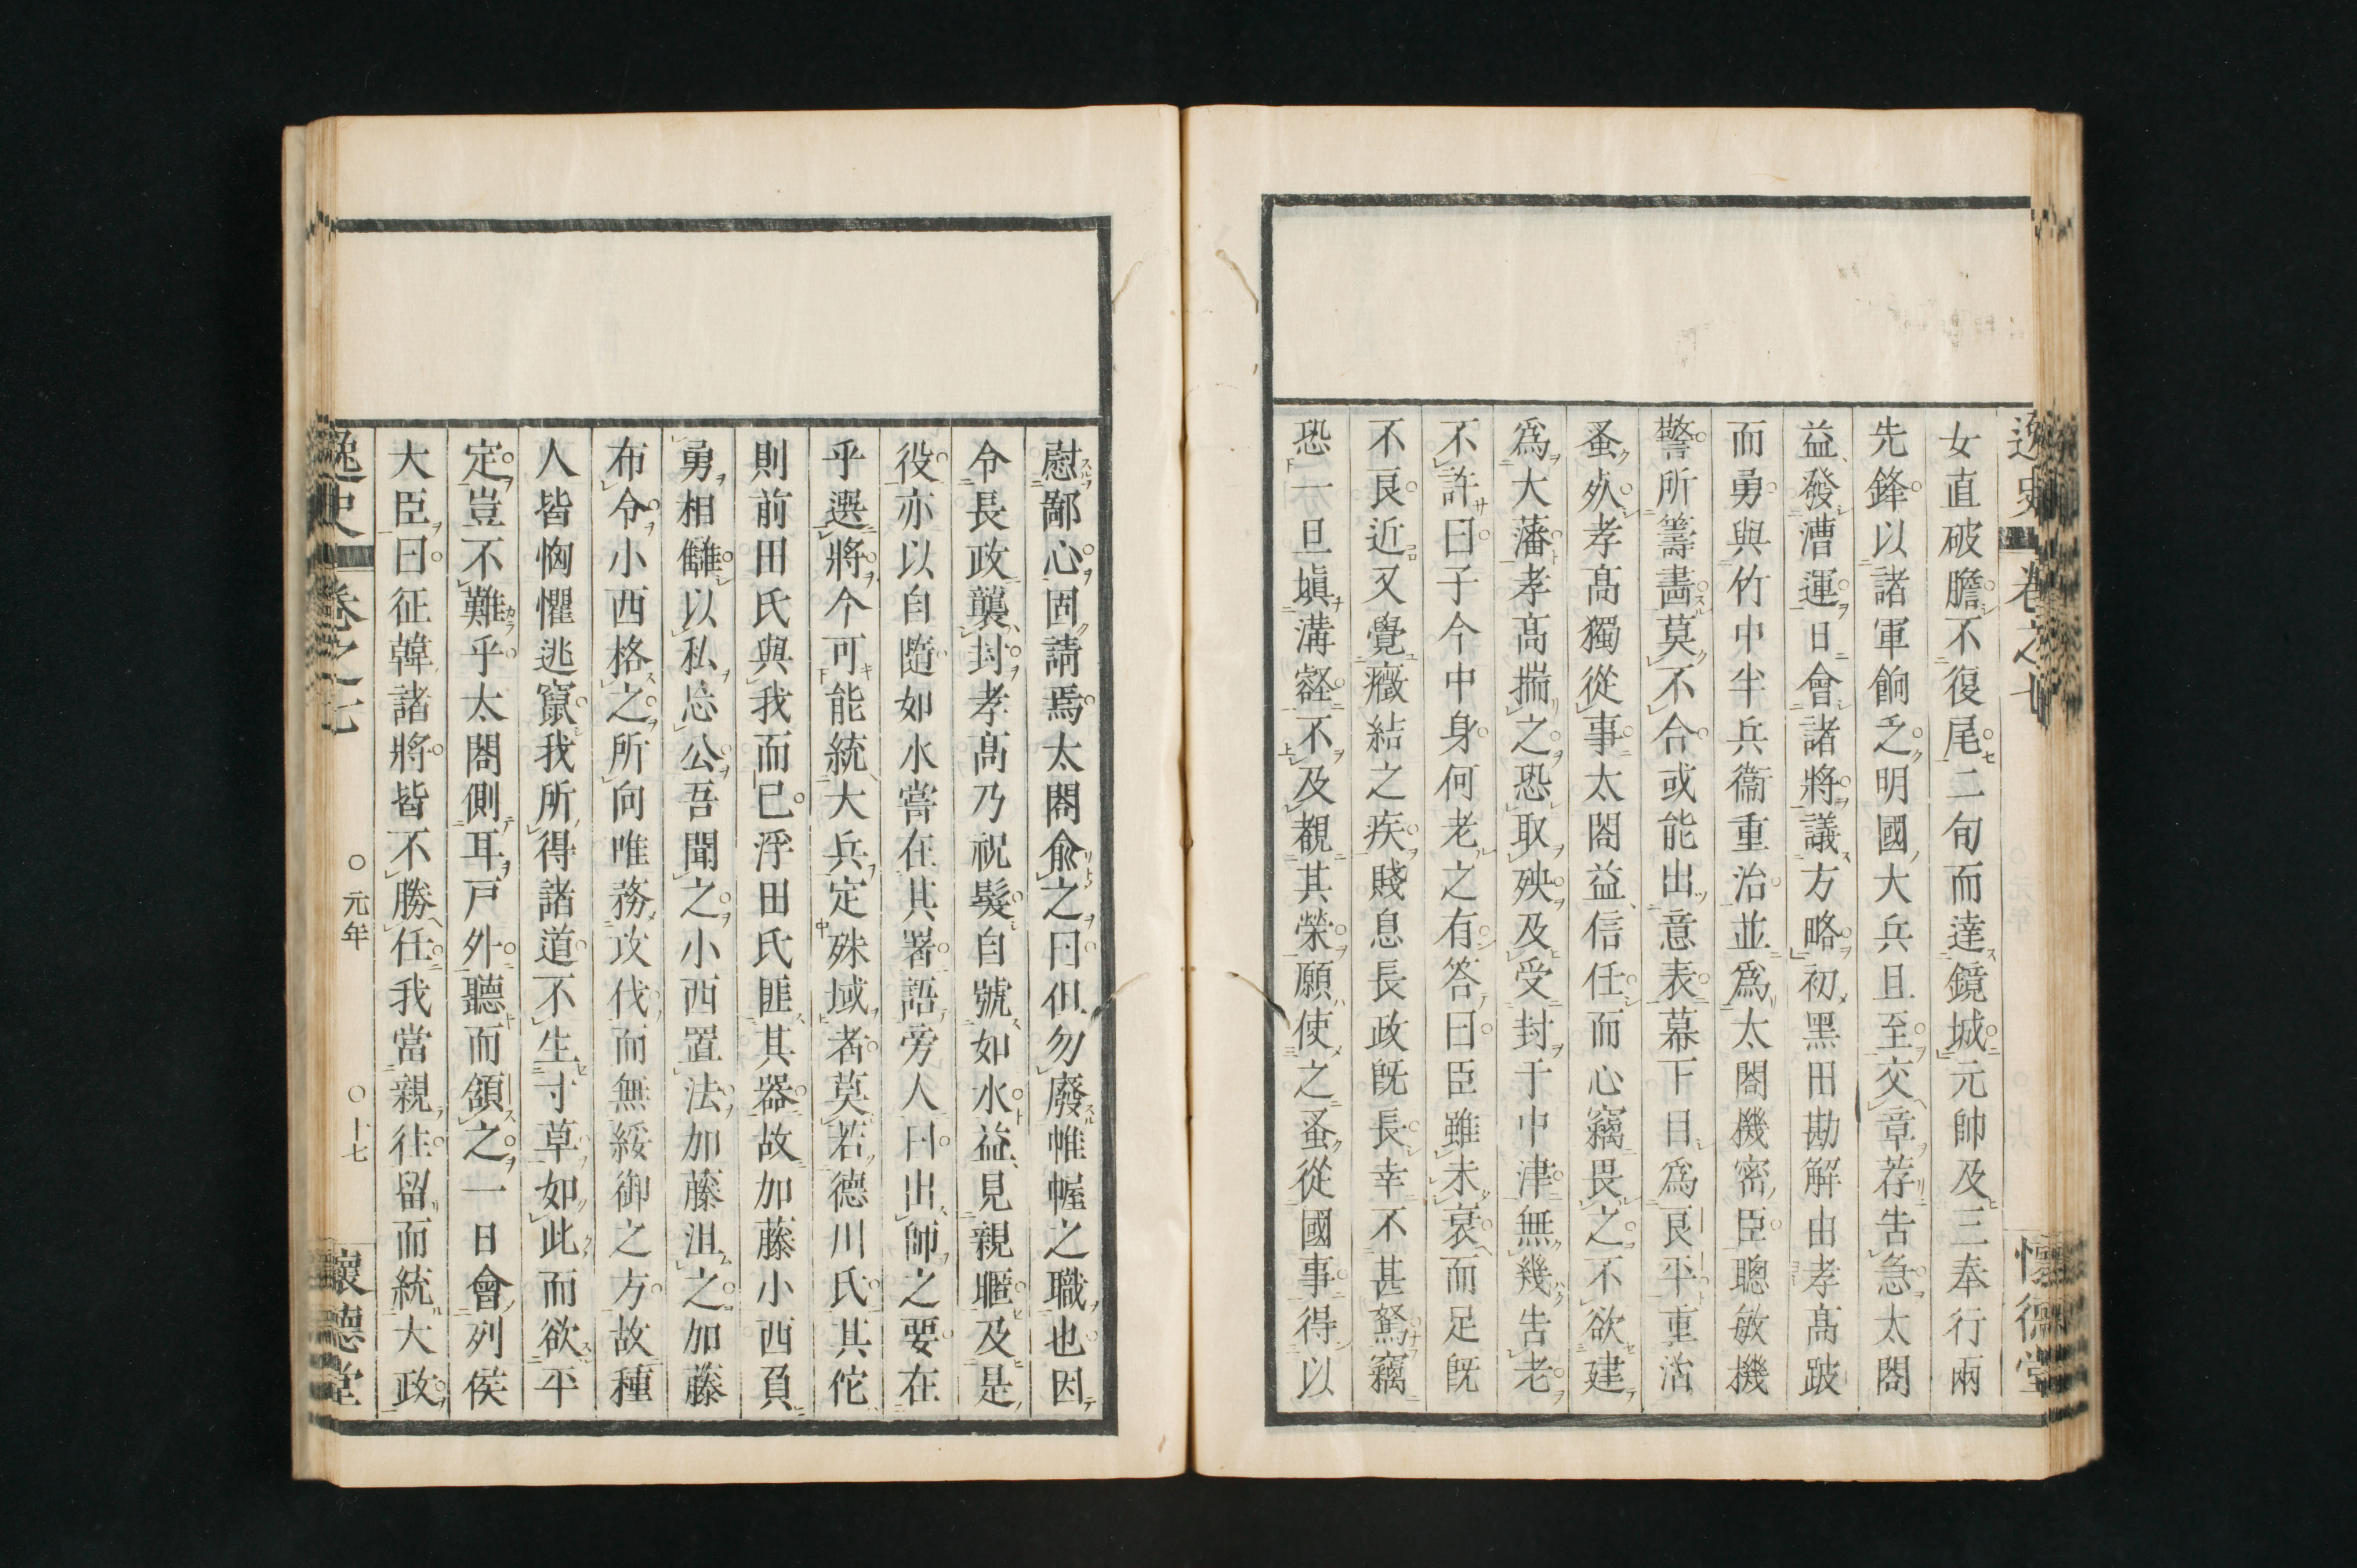 女直破膽不復尾二旬而達鏡城元帥及三奉行兩
先鋒以諸軍餉乏明國大兵且至交章荐告急太閤
益發漕運日會諸將議方略初黑田勘解由孝高跛
而勇與竹中半兵衞重治並爲太閤機密臣聰敏機
警所籌畵莫不合或能出意表幕下目爲良平重治
蚤殀孝高獨從事太閤益信任而心竊畏之不欲建
爲大藩孝高揣之恐取殃及受封于中津無幾告老
不許曰子今中身何老之有答曰臣雖未衰而足旣
不良近又覺癥結之疾賤息長政旣長幸不甚駑竊
恐一旦塡溝壑不及覩其榮願使之蚤從國事得以
慰鄙心固請焉太閤兪之曰但勿廢帷幄之職也因
令長政襲封孝高乃祝髮自號如水益見親暱及是
役亦以自隨如水嘗在其署語旁人曰出師之要在
乎選將今可能統大兵定殊域者莫若德川氏其佗
則前田氏與我而已浮田氏匪其器故加藤小西負
勇相讎以私忘公吾聞之小西置法加藤沮之加藤
布令小西格之所向唯務攻伐而無綏御之方故種
人皆恟懼逃竄我所得諸道不生寸草如此而欲平
定豈不難乎太閤側耳戸外聽而頷之一日會列侯
大臣曰征韓諸將皆不勝任我當親往留而統大政
逸史 卷之七 〇元年 〇十七 懷德堂